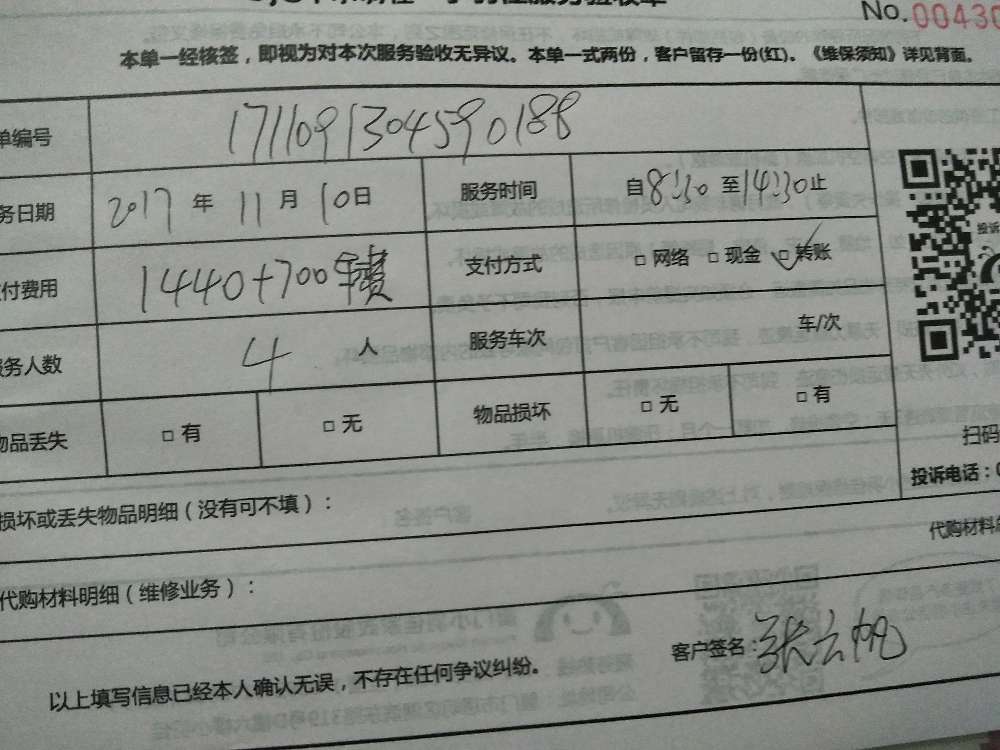 服务验收单
No.00430
本单一经核签，即视为对本次服务验收无异议。本单一式两份，客户留存一份(红)。《维保须知》详见背面。
单编号 1711091304590188
务日期 2017 年 11 月 10 日 服务时间 自 8:30 至 14:30 止
付费用 1440+700 支付方式 □ 网络 □ 现金 ☑ 转账
务人数 4 人 服务车次 车/次
物品丢失 □ 有 □ 无 物品损坏 □ 无 □ 有
投诉
扫码
投诉电话：0
损坏或丢失物品明细（没有可不填）：
代购材料
代购材料明细（维修业务）：
客户签名：张云帆
以上填写信息已经本人确认无误，不存在任何争议纠纷。